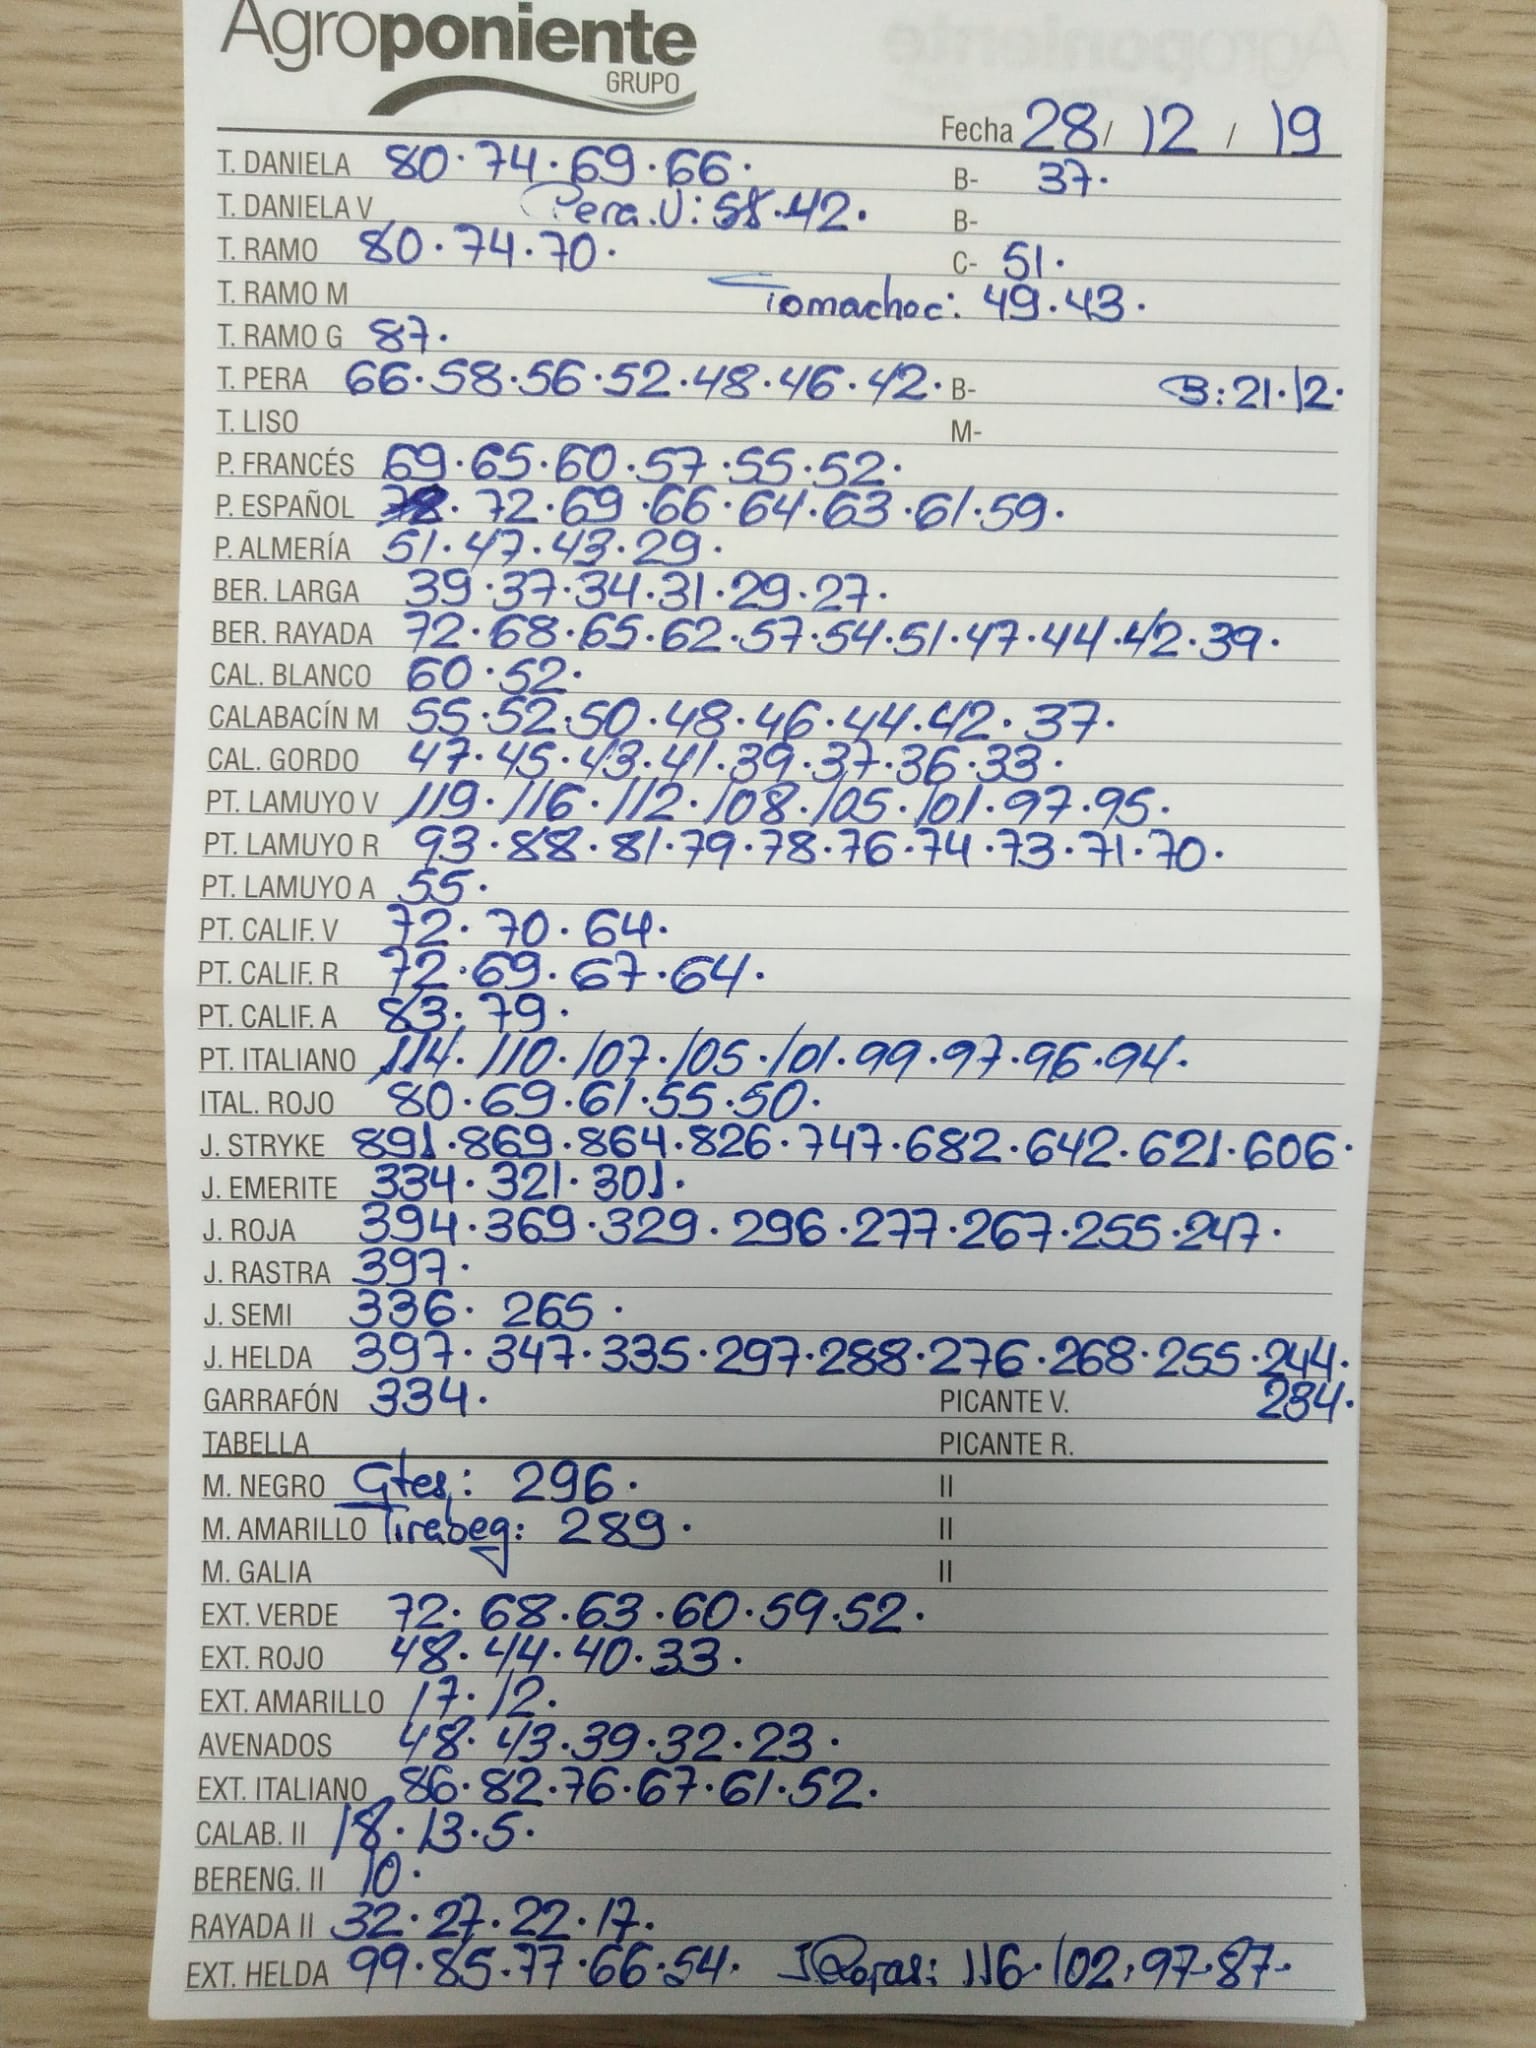 Agroponiente
GRUPO
Fecha 28 / 12 / 19
T. DANIELA 80·74·69·66· B- 37·
T. DANIELA V Pera.V: 58·42· B-
T. RAMO 80·74·70· C- 51·
T. RAMO M Tomachoc: 49·43·
T. RAMO G 87·
T. PERA 66·58·56·52·48·46·42· B- B:21·12·
T. LISO M-
P. FRANCÉS 69·65·60·57·55·52·
P. ESPAÑOL 72·69·66·64·63·61·59·
P. ALMERÍA 51·47·43·29·
BER. LARGA 39·37·34·31·29·27·
BER. RAYADA 72·68·65·62·57·54·51·47·44·42·39·
CAL. BLANCO 60·52·
CALABACÍN M 55·52·50·48·46·44·42·37·
CAL. GORDO 47·45·43·41·39·37·36·33·
PT. LAMUYO V 119·116·112·108·105·101·97·95·
PT. LAMUYO R 93·88·81·79·78·76·74·73·71·70·
PT. LAMUYO A 55·
PT. CALIF. V 72·70·64·
PT. CALIF. R 72·69·67·64·
PT. CALIF. A 83·79·
PT. ITALIANO 114·110·107·105·101·99·97·96·94·
ITAL. ROJO 80·69·61·55·50·
J. STRYKE 891·869·864·826·747·682·642·621·606·
J. EMERITE 334·321·301·
J. ROJA 394·369·329·296·277·267·255·247·
J. RASTRA 397·
J. SEMI 336·265·
J. HELDA 397·347·335·297·288·276·268·255·244·
GARRAFÓN 334· PICANTE V. 234·
TABELLA PICANTE R.
M. NEGRO Gtes: 296· II
M. AMARILLO Tirabeq: 289· II
M. GALIA II
EXT. VERDE 72·68·63·60·59·52·
EXT. ROJO 48·44·40·33·
EXT. AMARILLO 17·12·
AVENADOS 48·43·39·32·23·
EXT. ITALIANO 86·82·76·67·61·52·
CALAB. II 18·13·5·
BERENG. II 10·
RAYADA II 32·27·22·17·
EXT. HELDA 99·85·77·66·54· J Rojas: 116·102·97·87·